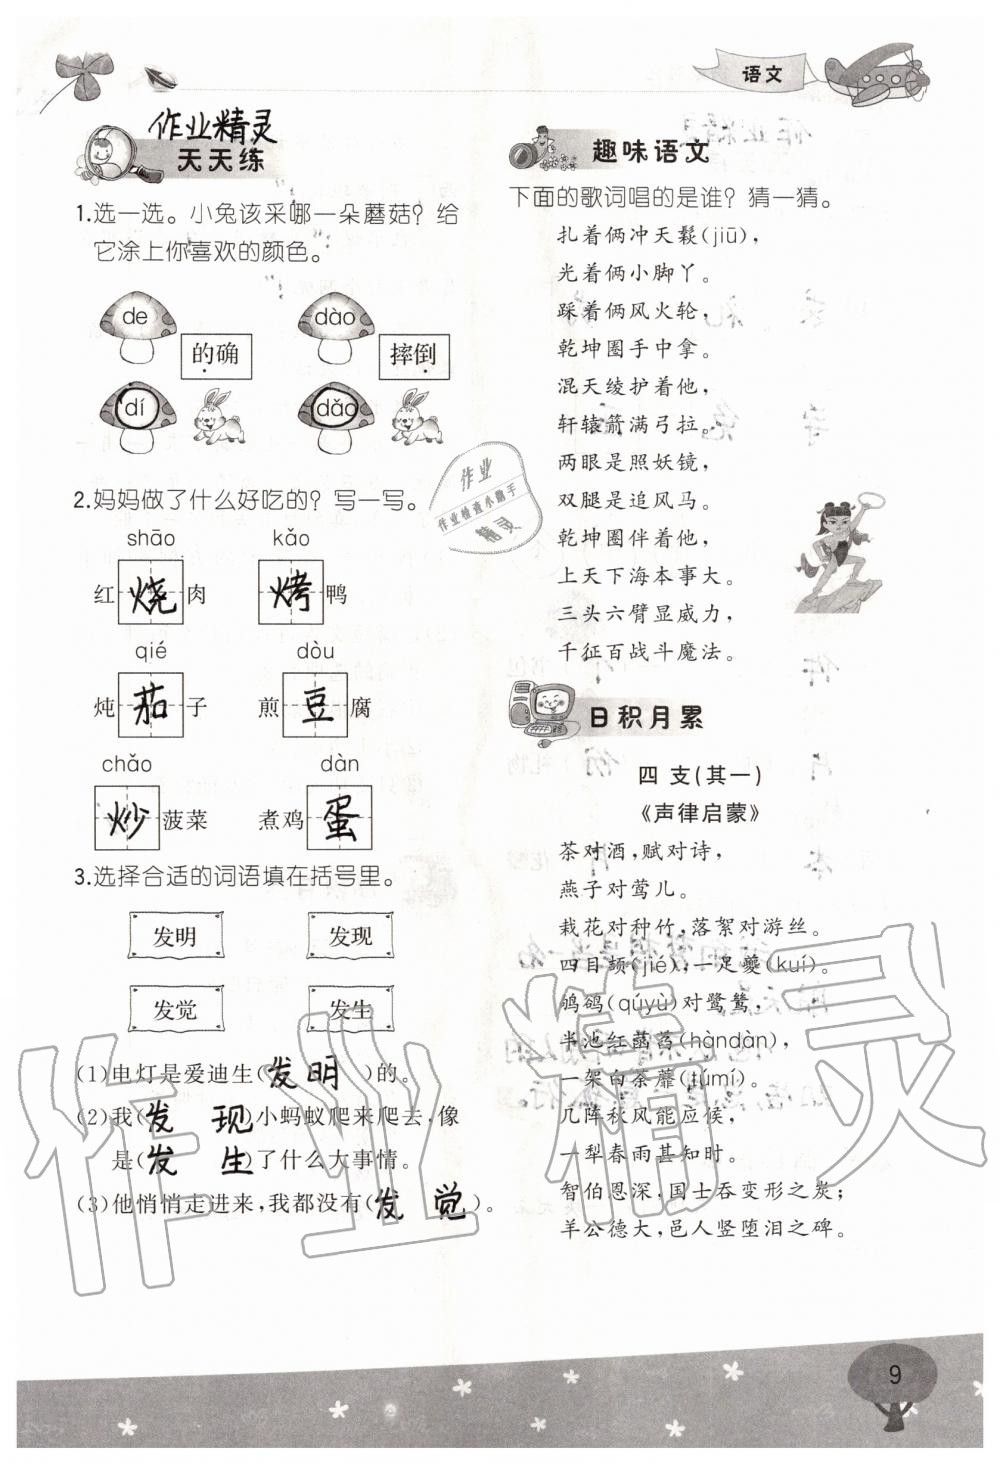 语文
作业精灵
天天练
1.选一选。小兔该采哪一朵蘑菇？给
它涂上你喜欢的颜色。
de
的确
dí
dào
摔倒
dǎo
2.妈妈做了什么好吃的？写一写。
shāo
kǎo
红烧肉
烤鸭
qié
dòu
炖茄子
煎豆腐
chǎo
dàn
炒菠菜
煮鸡蛋
3.选择合适的词语填在括号里。
发明
发现
发觉
发生
(1)电灯是爱迪生(发明)的。
(2)我(发现)小蚂蚁爬来爬去,像
是(发生)了什么大事情。
(3)他悄悄走进来,我都没有(发觉)。
趣味语文
下面的歌词唱的是谁？猜一猜。
扎着俩冲天鬏(jiū),
光着俩小脚丫。
踩着俩风火轮,
乾坤圈手中拿。
混天绫护着他,
轩辕箭满弓拉。
两眼是照妖镜,
双腿是追风马。
乾坤圈伴着他,
上天下海本事大。
三头六臂显威力,
千征百战斗魔法。
日积月累
四 支(其一)
《声律启蒙》
茶对酒,赋对诗,
燕子对莺儿。
栽花对种竹,落絮对游丝。
四目颉(jié),一足夔(kuí)。
鸲鹆(qúyù)对鹭鸶,
半池红菡萏(hàndàn),
一架白荼蘼(túmí)。
几阵秋风能应候,
一犁春雨甚知时。
智伯恩深,国士吞变形之炭;
羊公德大,邑人竖堕泪之碑。
作业
作业检查小助手
精灵
作业精灵
9